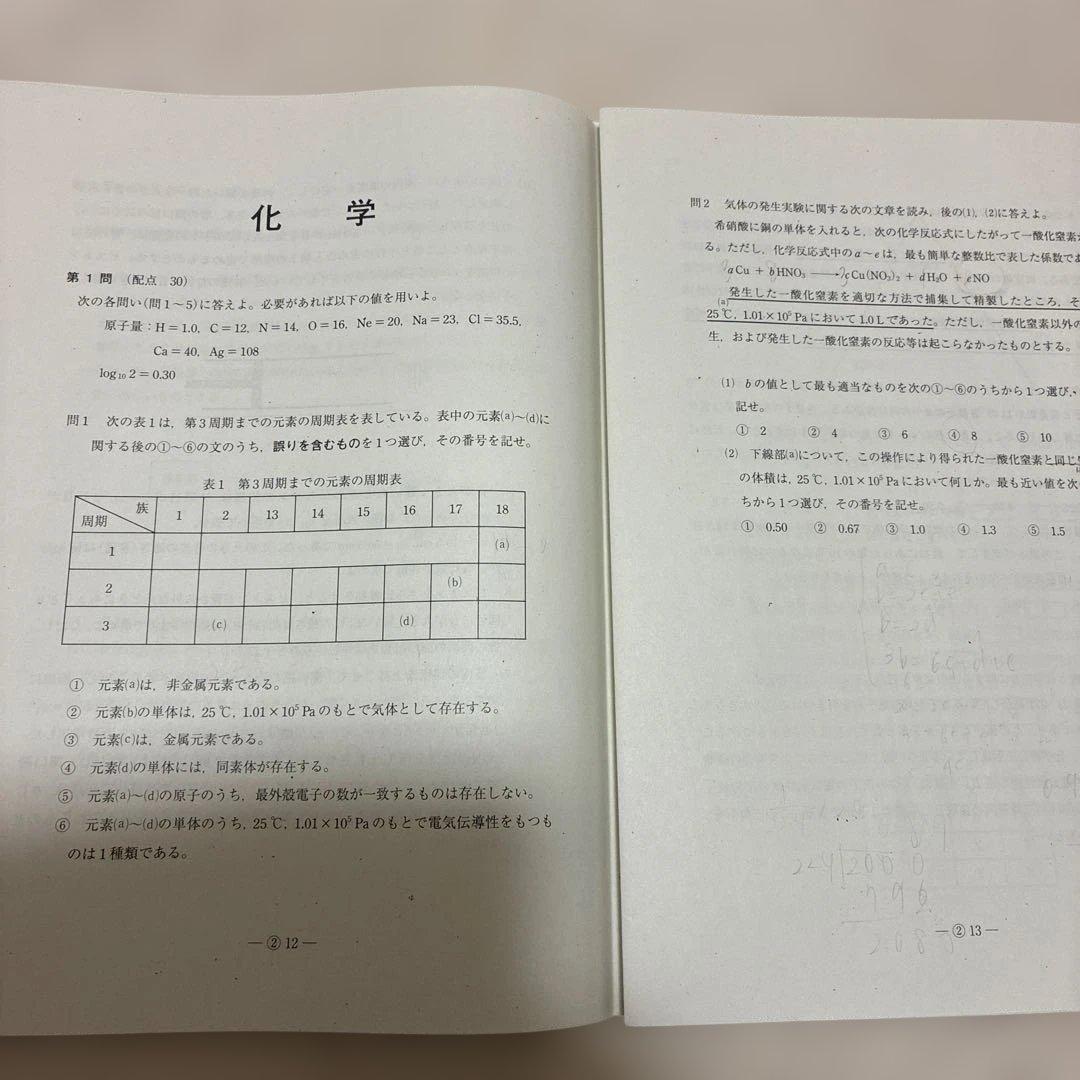 化 学
第1問 (配点 30)
次の各問い(問1～5)に答えよ。必要があれば以下の値を用いよ。
原子量：H＝1.0, C＝12, N＝14, O＝16, Ne＝20, Na＝23, Cl＝35.5,
Ca＝40, Ag＝108
log₁₀2＝0.30
問1 次の表1は，第3周期までの元素の周期表を表している。表中の元素(a)～(d)に
関する後の①～⑥の文のうち，誤りを含むものを1つ選び，その番号を記せ。
表1 第3周期までの元素の周期表
周期 族 1 2 13 14 15 16 17 18
1 (a)
2 (b)
3 (c) (d)
① 元素(a)は，非金属元素である。
② 元素(b)の単体は，25℃, 1.01×10⁵Paのもとで気体として存在する。
③ 元素(c)は，金属元素である。
④ 元素(d)の単体には，同素体が存在する。
⑤ 元素(a)～(d)の原子のうち，最外殻電子の数が一致するものは存在しない。
⑥ 元素(a)～(d)の単体のうち，25℃, 1.01×10⁵Paのもとで電気伝導性をもつも
のは1種類である。
―②12―
問2 気体の発生実験に関する次の文章を読み，後の(1), (2)に答えよ。
希硝酸に銅の単体を入れると，次の化学反応式にしたがって一酸化窒素
る。ただし，化学反応式中のa～eは，最も簡単な整数比で表した係数であ
aCu + bHNO₃ ⟶ cCu(NO₃)₂ + dH₂O + eNO
(a)発生した一酸化窒素を適切な方法で捕集して精製したところ，そ
25℃, 1.01×10⁵Paにおいて1.0Lであった。ただし，一酸化窒素以外の
生，および発生した一酸化窒素の反応等は起こらなかったものとする。
(1) bの値として最も適当なものを次の①～⑥のうちから1つ選び，
記せ。
① 2 ② 4 ③ 6 ④ 8 ⑤ 10
(2) 下線部(a)について，この操作により得られた一酸化窒素と同じ
の体積は，25℃, 1.01×10⁵Paにおいて何Lか。最も近い値を次
ちから1つ選び，その番号を記せ。
① 0.50 ② 0.67 ③ 1.0 ④ 1.3 ⑤ 1.5
―②13―